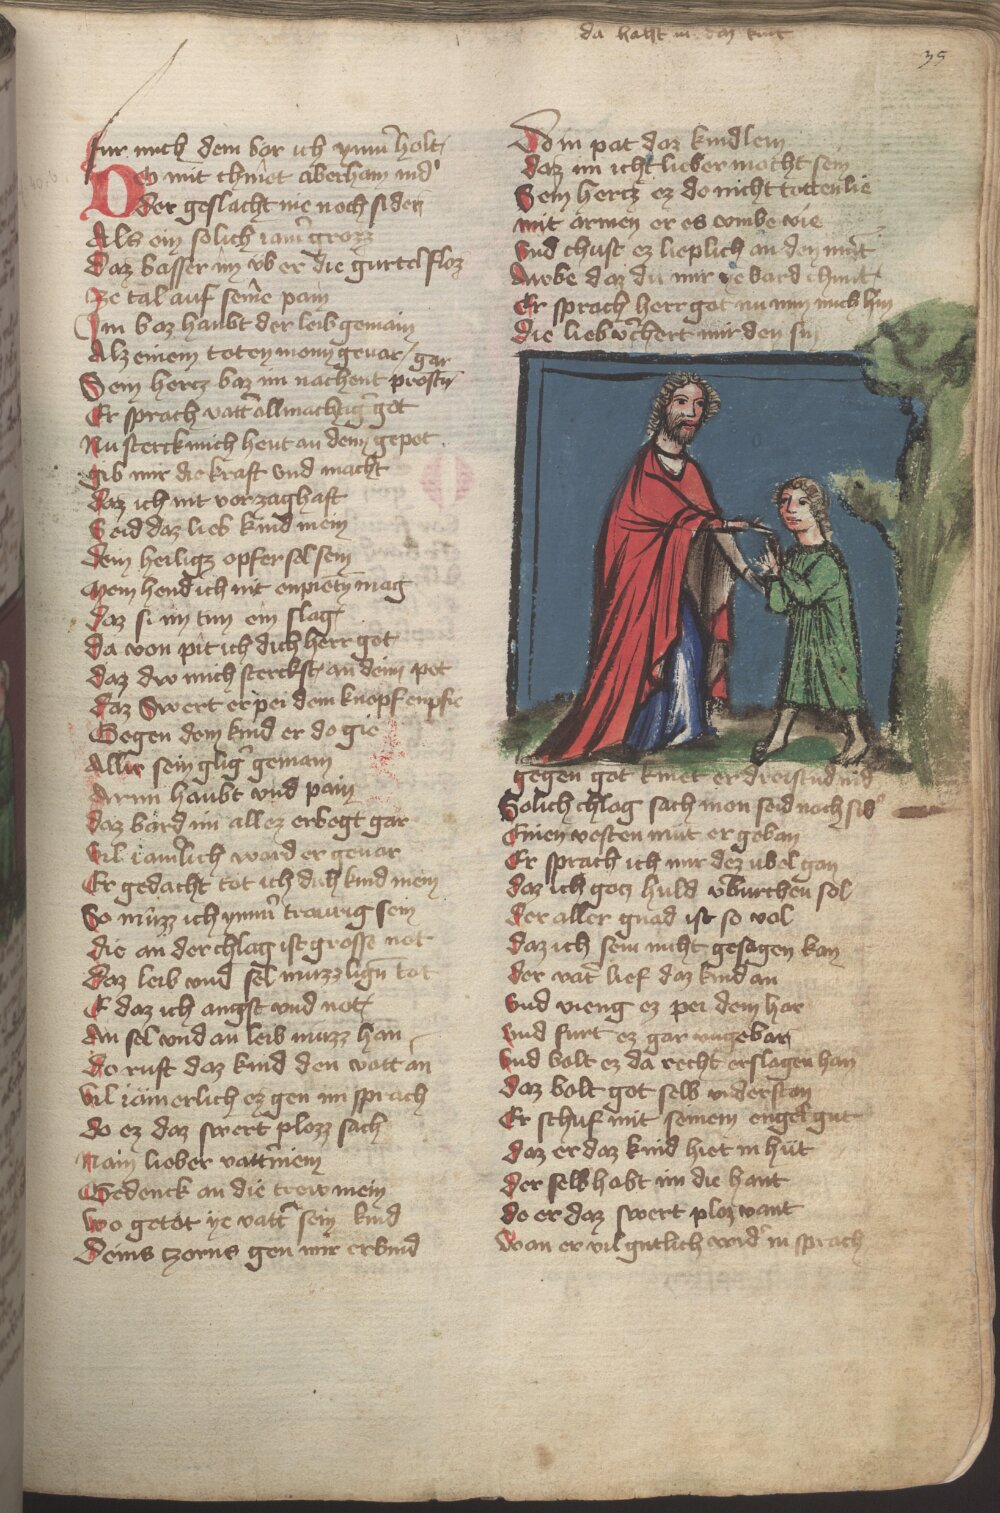 da halst in daz kint
35
fur mich dem bor ich ymm̄ holt
Den mit chniet aberham nid'
der geslacht nie noch sider
Als ein solich iam̄ grozz
Daz basser im vb er die gurtel floz
Ze tal auf seine pain
Im boz haubt der leib gemain
Alz einem toten mann gevar gar
Sein hercz baz im nachent
Er sprach vatt̄ allmachtiḡ got
Nu sterck mich heut an dem gepot
gib mir die kraft vnd macht
daz ich nit vorzaghaft
Seid daz lieb kind mein
dein heiligz opfer sol sein
Mein hend ich nit mag
daz si im tun ein slag
da von pit ich dich herr got
daz dw mich sterckst an deim pot
daz Swert er pei dem knopf enpfie
Gegen dem kind er do gie
Aller sein glid̄ gemain
Armm haubt vnd pain
daz bard im allez erbegt gar
Vil iam̄lich ward er gevar
Er gedacht tot ich dich kind mein
So muzz ich ymm̄ traurig sein
die an der chlag ist grosse not
daz leib vnd sel muzz lign̄ tot
E daz ich angst vnd not
An sel vnd an leib muzz han
do ruft daz kind den vatt̄ an
vil iämerlich ez gen im sprach
do ez daz swert plozz sach
Nain lieber vatt̄ mein
Gedenck an die trew mein
wo getöt ye vatt̄ sein kind
deins czorns gen mir erbind
Do in pat daz kindlein
daz im icht lieber mocht sein
Sein hertz ez do nicht totten lie
mit armen er es vmbe vie
Vnd chust ez lieplich an den mūt
daz du mir ye bard chunt
Er sprach herr got nu nim mich hin
die lieb v̄chert mir den sin
gegen got kniet er dreistund nid'
Solich chlag sach man seid noch sid'
Einen vesten mut er geban
Er sprach ich mir dez vbel gan
daz ich gocz huld v̄burchen sol
der aller gnad ist so vol
daz ich sein nicht gesagen kan
der vat̄ lief daz kind an
vnd vieng ez pei dem har
vnd furt ez gar vngebar
vnd bolt ez da recht erslagen han
daz bolt got selb vnderstan
Er schuf mit seinem engel gut
daz er daz kind hiet in hut
der selb habt im die hant
do er daz swert ploz vant
wan er vil gutlich wid' in sprach